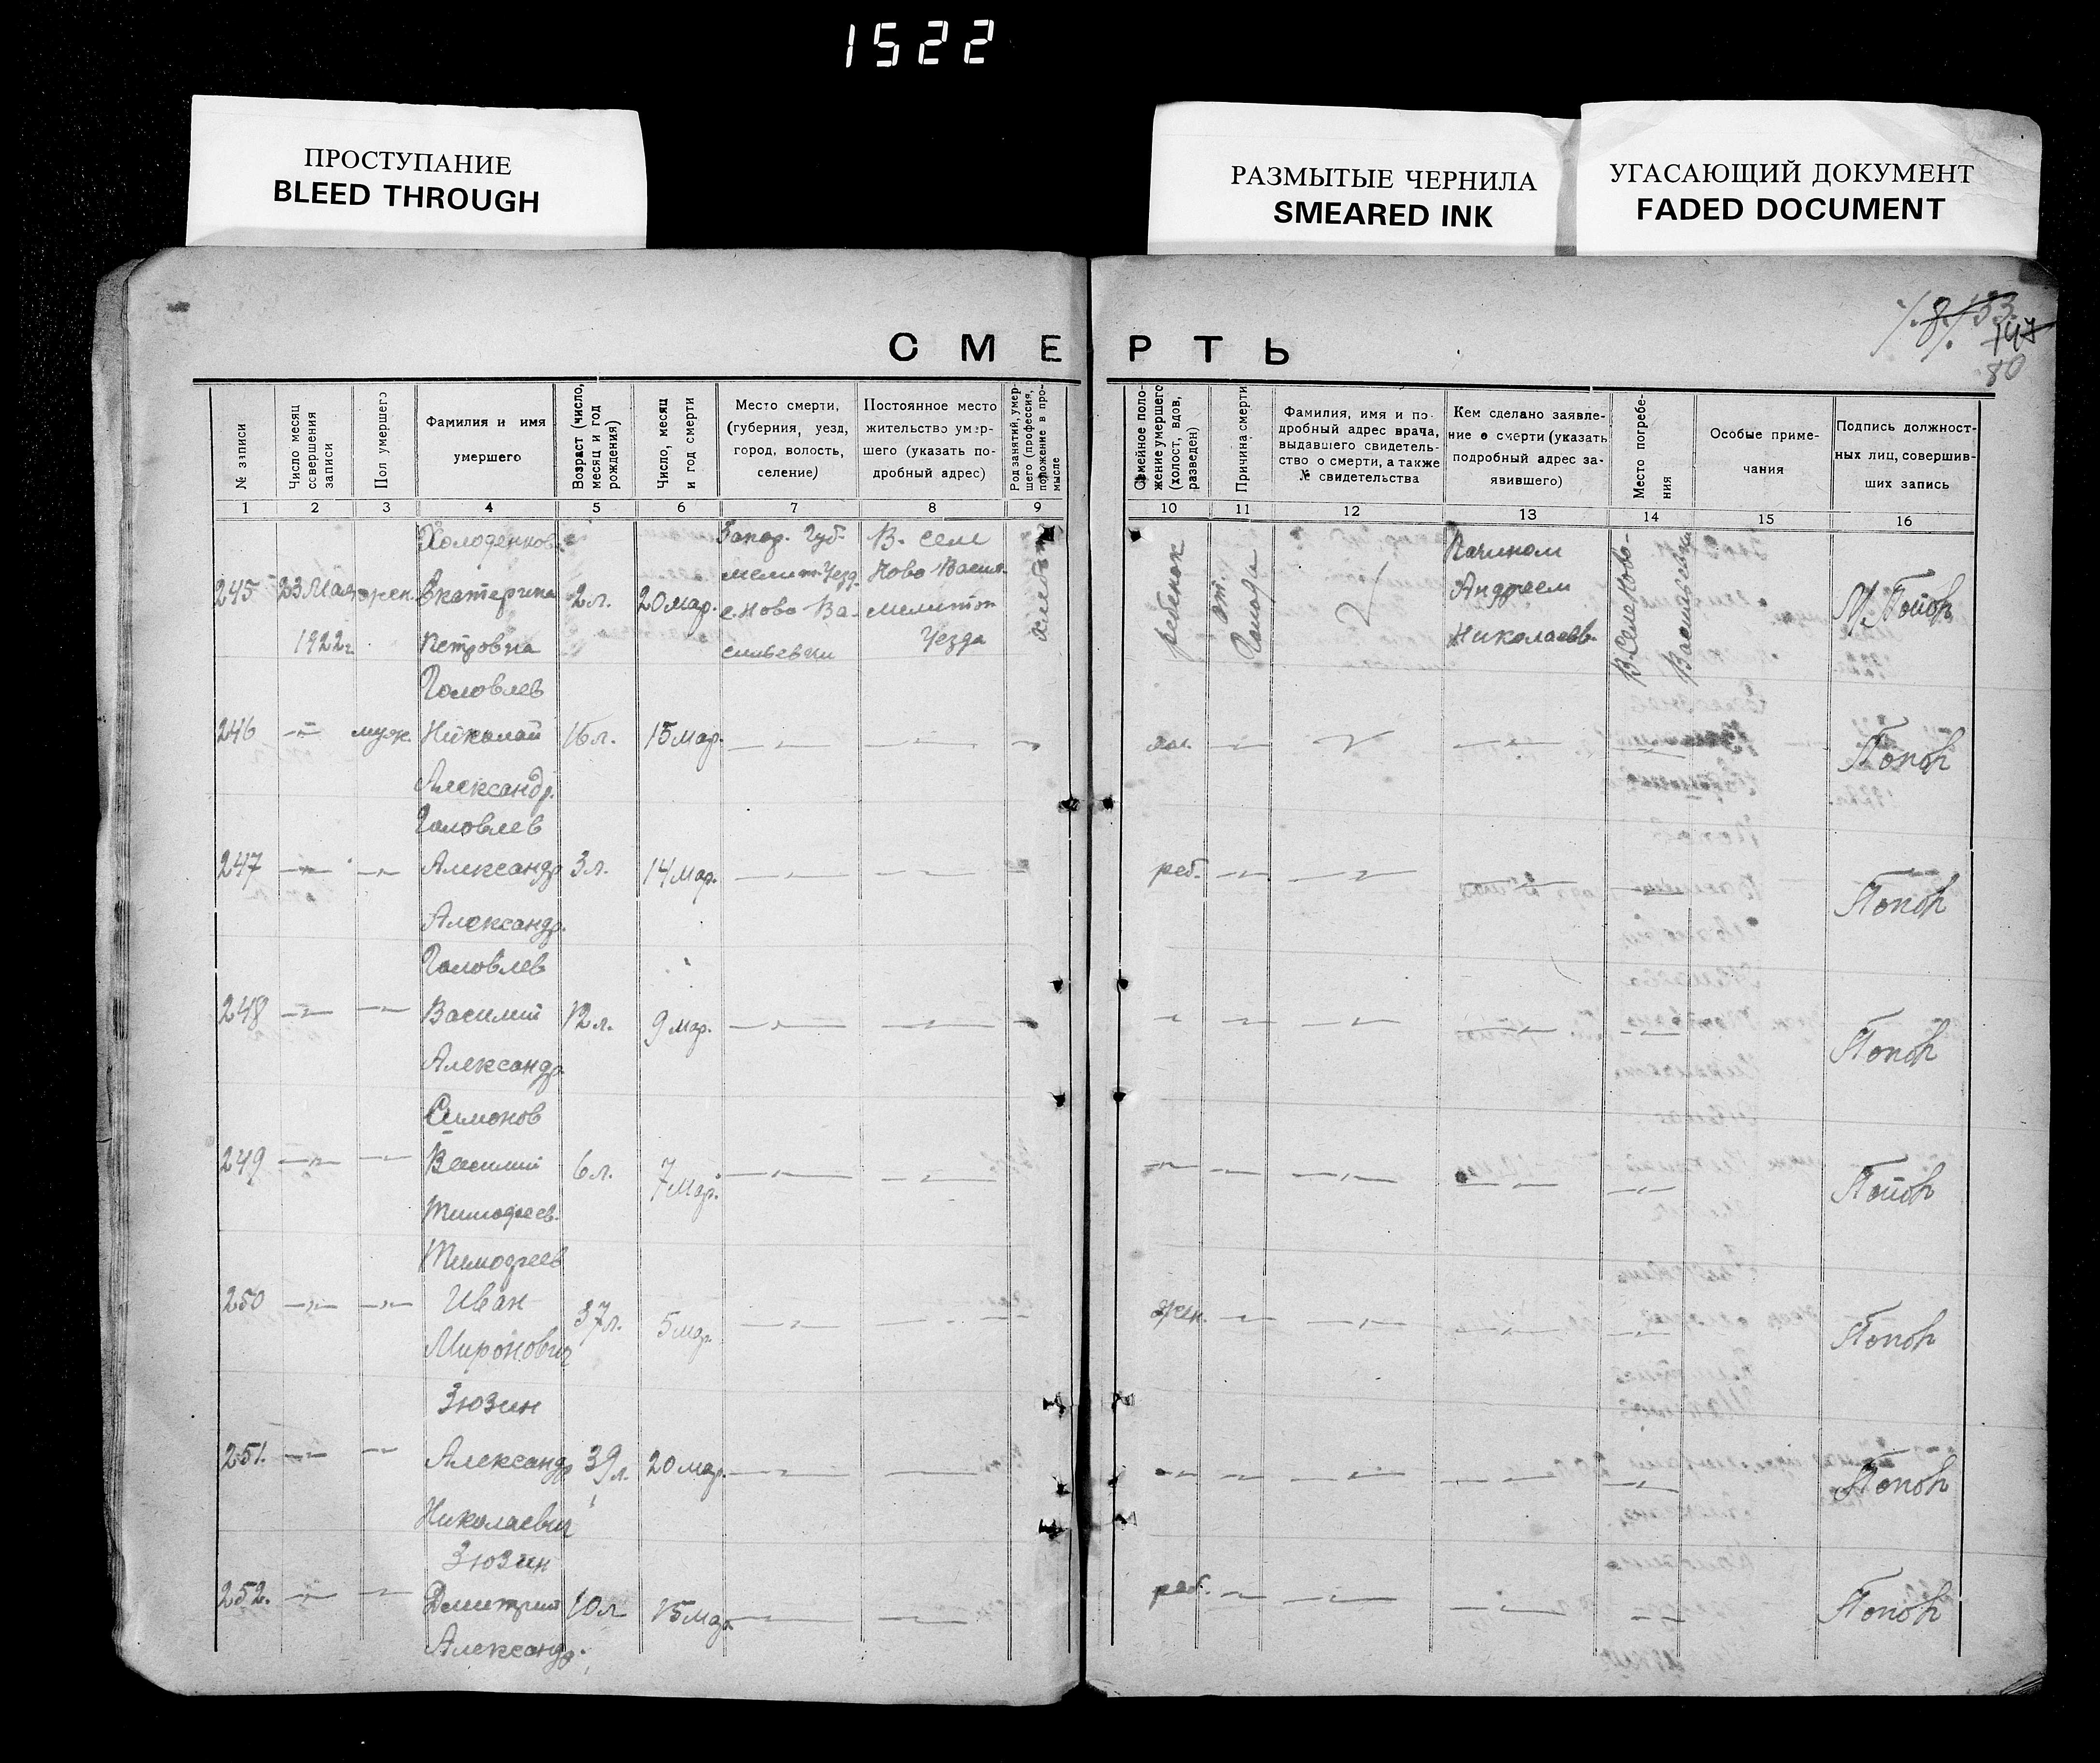 1522
ПРОСТУПАНИЕ
BLEED THROUGH
РАЗМЫТЫЕ ЧЕРНИЛА
SMEARED INK
УГАСАЮЩИЙ ДОКУМЕНТ
FADED DOCUMENT
147
80
СМЕРТЬ
№ записи
Число месяц
совершения
записи
Пол умершего
Фамилия и имя
умершего
Возраст (число,
месяц и год
рождения)
Число, месяц
и год смерти
Место смерти,
(губерния, уезд,
город, волость,
селение)
Постоянное место
жительство умер-
шего (указать по-
дробный адрес)
Род занятий, умер-
шего (профессия,
положение в про-
мысле
Семейное поло-
жение умершего
(холост, вдов,
разведен)
Причина смерти
Фамилия, имя и по-
дробный адрес врача,
выдавшего свидетель-
ство о смерти, а также
№ свидетельства
Кем сделано заявле-
ние о смерти (указать
подробный адрес за-
явившего)
Место погребе-
ния
Особые приме-
чания
Подпись должност-
ных лиц, совершив-
ших запись
1 2 3 4 5 6 7 8 9 10 11 12 13 14 15 16
245
23 Мая
1922г.
жен.
Холоденков
Екатерина
Петровна
2л.
20 мар.
Запор. Губ.
мелит. Уезд.
с. Ново Ва-
сильевки
В. Сел
Ново Васил.
мелитоп
Уезда
ребенок
от.
Голода
Андреем
Николаев.
В. Сел. Ново-
Васильевки
М. Попов
246 муж.
Головлев
Николай
Александр.
16л. 15 мар.
Попов
247
Головлев
Александр
Александр.
3л. 14 мар.
реб.
Попов
248
Головлев
Василий
Александр.
12л. 9 мар.
Попов
249
Симонов
Василий
Тимофеев.
6л. 7 мар.
Попов
250
Тимофеев
Иван
Миронович
37л. 5 мар.
жен.
Попов
251.
Зюзин
Александр
Николаевич
39л. 20 мар.
Попов
252.
Зюзин
Дмитрий
Александр.
10л 15 мар
реб.
Попов